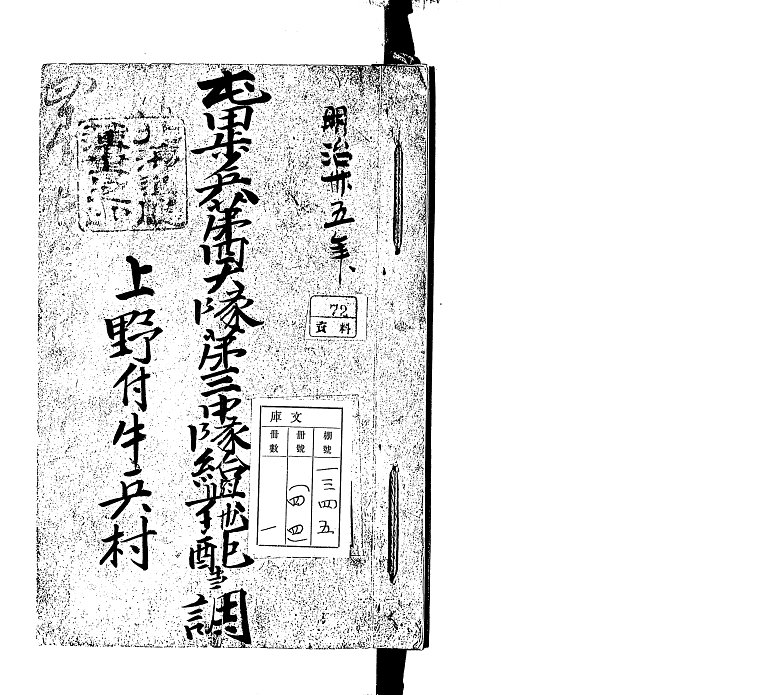 明治廿五年
屯田兵第四大隊第三中隊給与地配当調
上野付牛兵村
72
資料
文庫
棚號 一三四五
冊號 (四四)
冊數 一